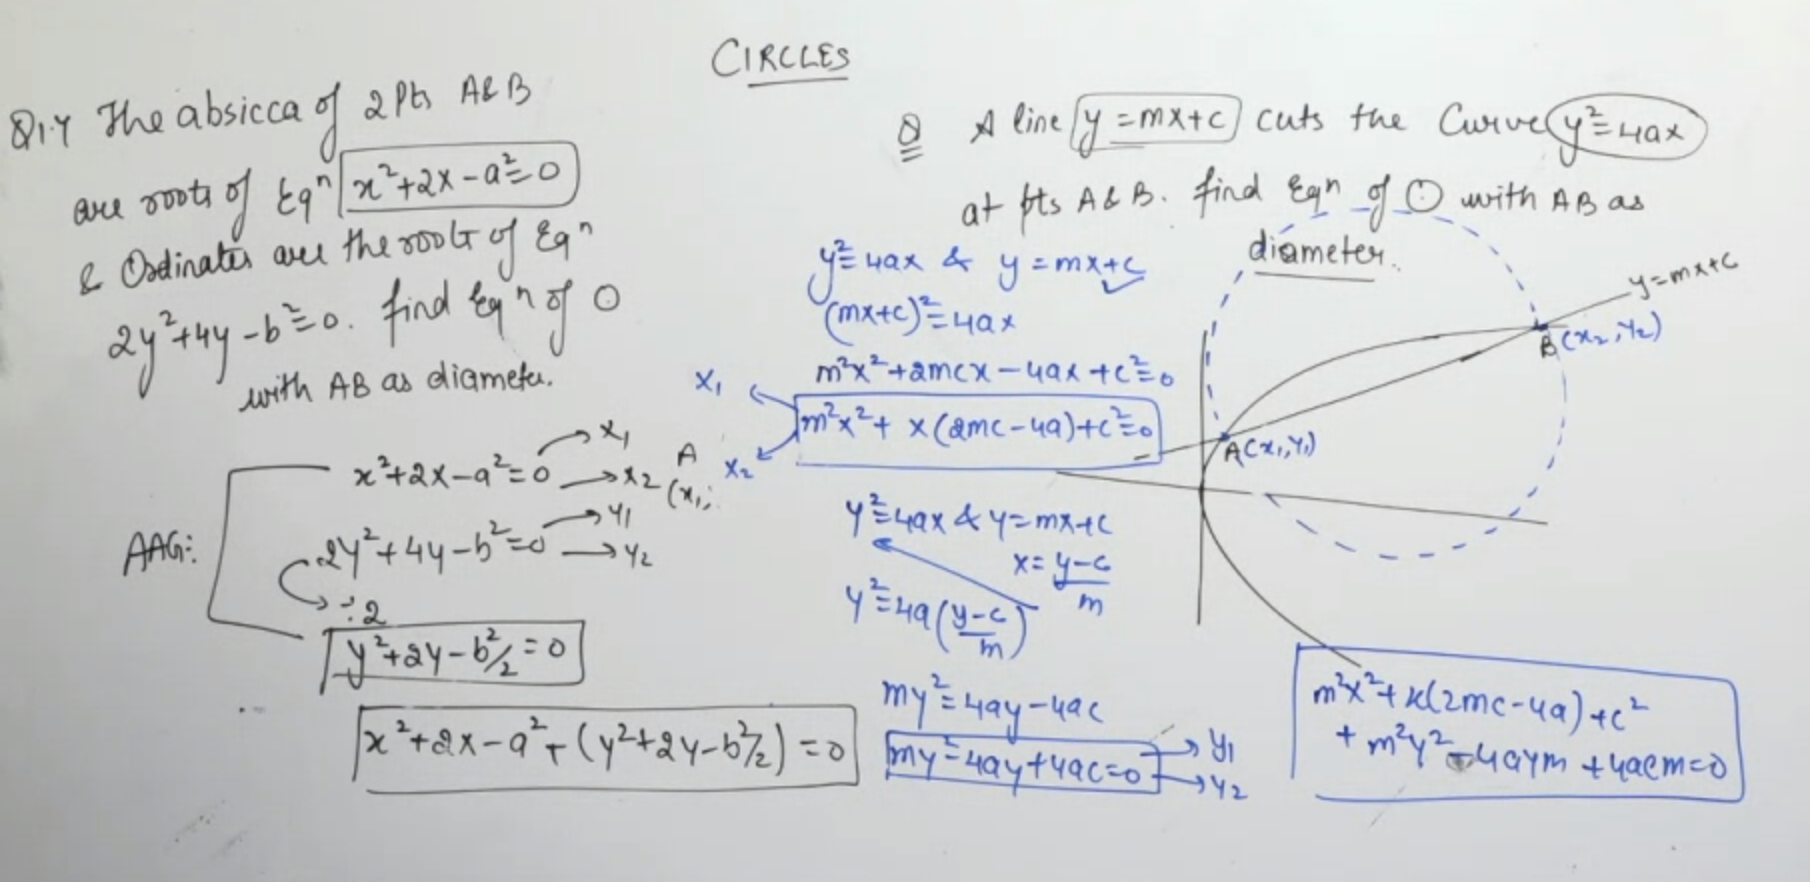 CIRCLES
Q1.Y The absicca of 2 Pts A & B
are roots of Eqⁿ x²+2x-a²=0
& Ordinates are the roots of Eqⁿ
2y²+4y-b²=0. find Eqⁿ of ⊙
with AB as diameter.
x²+2x-a²=0 → x₁
→ x₂
A
(x₁,
AAG:
2y²+4y-b²=0 → y₁
→ y₂
÷2
y²+2y-b²/2=0
x²+2x-a²+(y²+2y-b²/2)=0
Q A line y=mx+c cuts the Curve y²=4ax
at pts A & B. find Eqn of ⊙ with AB as
diameter.
y²=4ax & y=mx+c
(mx+c)²=4ax
m²x²+2mcx-4ax+c²=0
x₁
m²x²+x(2mc-4a)+c²=0
x₂
y²=4ax & y=mx+c
x=(y-c)/m
y²=4a((y-c)/m)
my²=4ay-4ac
my²-4ay+4ac=0 → y₁
→ y₂
y=mx+c
B(x₂,y₂)
A(x₁,y₁)
m²x²+x(2mc-4a)+c²
+m²y²-4aym+4acm=0